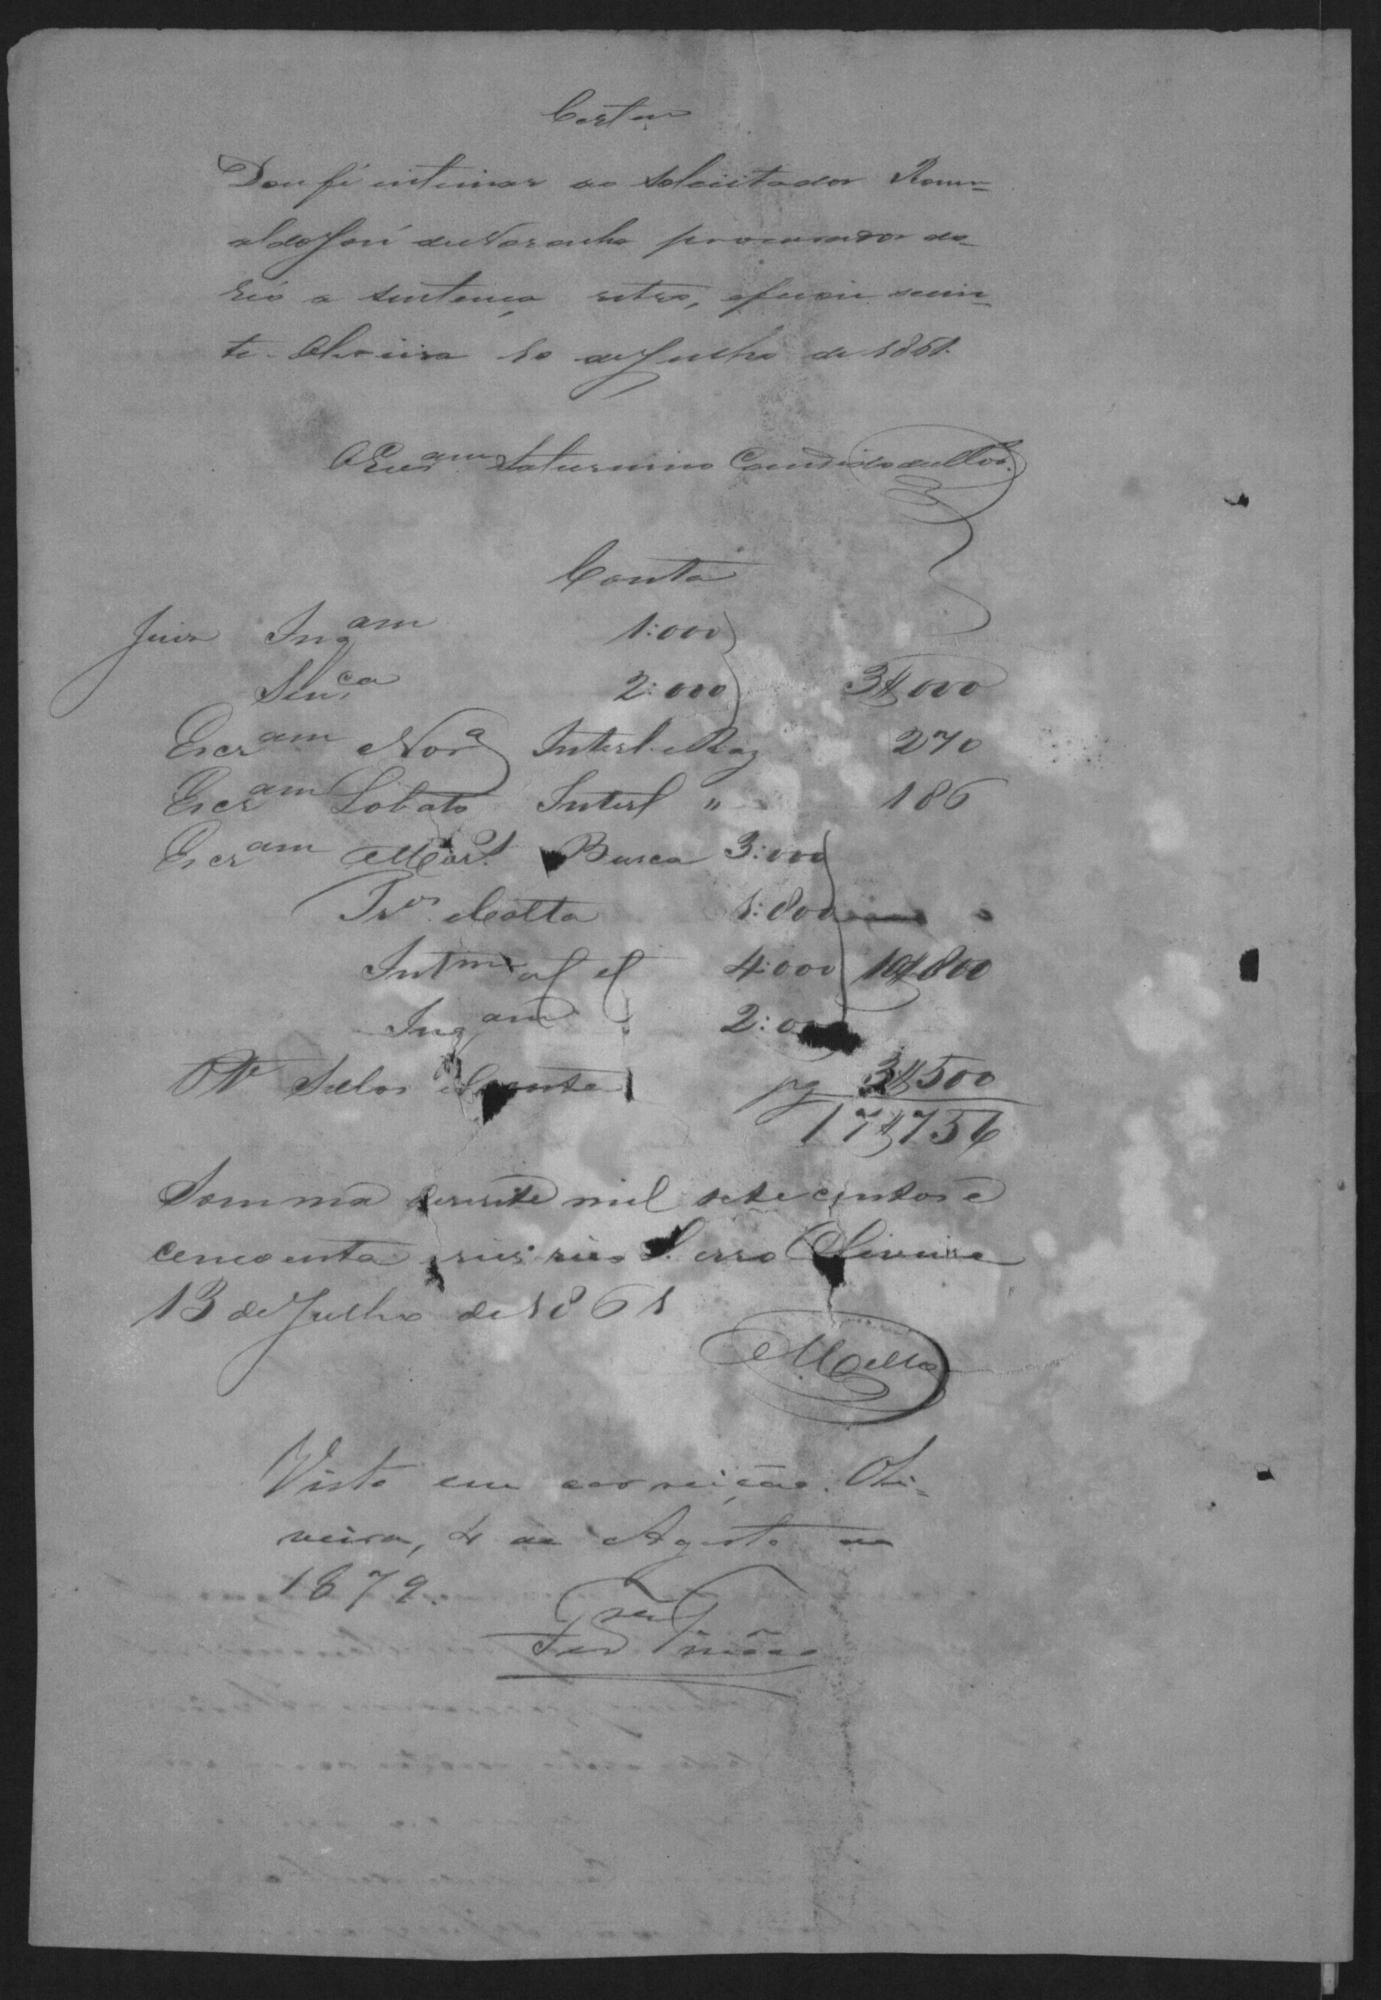 Certam
Dou fé intimar ao Solicitador Romu=
aldo José de Noronha procurador do
Réo a sentença retro, eficou scien=
te. Oliveira 10 de Julho de 1861.
O Escram Saturnino Candido de
Conta
Juiz Inqam 1:000
Senca 2:000 3$000
Escram Nora Interl e Raz 270
Escram Lobato Interl " 186
Escram Mart. Busca 3:000
1:800
Intm 4:000 10$800
Inqam 2:0
Sellos e Conta pg 3$500
17$756
Somma desesete mil sete centos e
cincoenta seis reis S. erro Oliveira
13 de Julho de 1861
Mello
Visto em correição. Oli=
veira, 4 de Agosto de
1879.